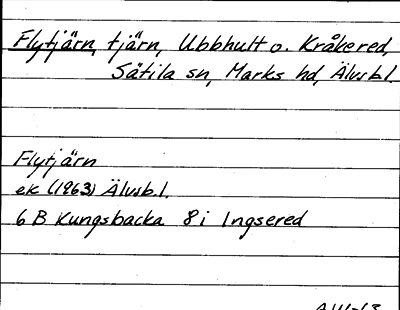 Flytjärn, tjärn, Ubbhult o. Kråkered,
Sätila sn, Marks hd, Älvsb.l.
Flytjärn
ek (1963) Älvsb.l.
6 B Kungsbacka 8 i Ingsered